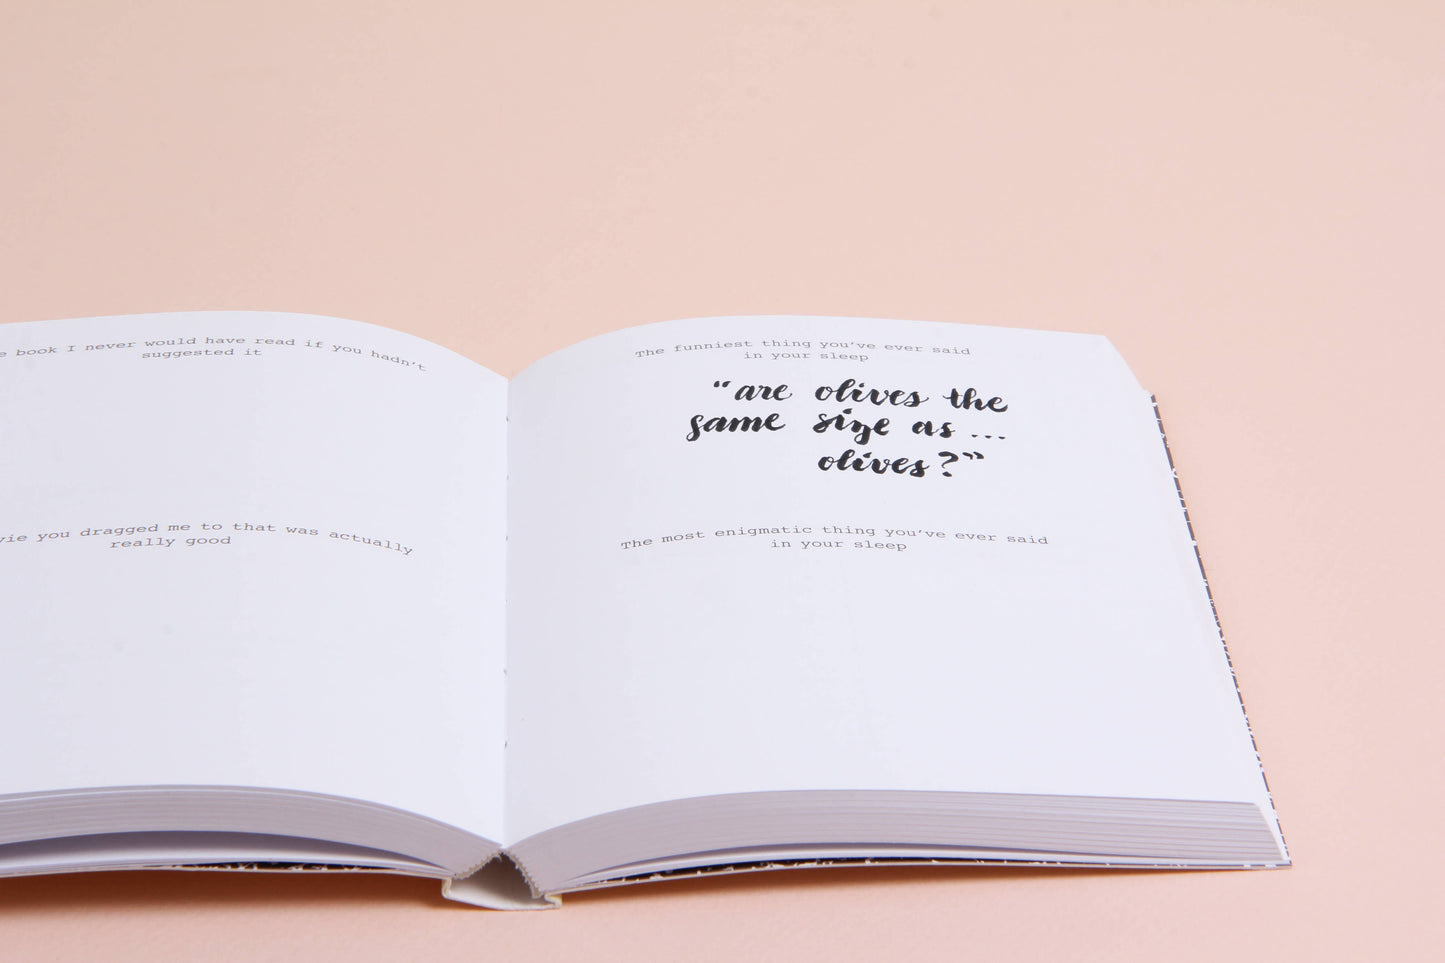 book I never would have read if you hadn't
suggested it
you dragged me to that was actually
really good
The funniest thing you've ever said
in your sleep
“are olives the
same size as...
olives?”
The most enigmatic thing you've ever said
in your sleep